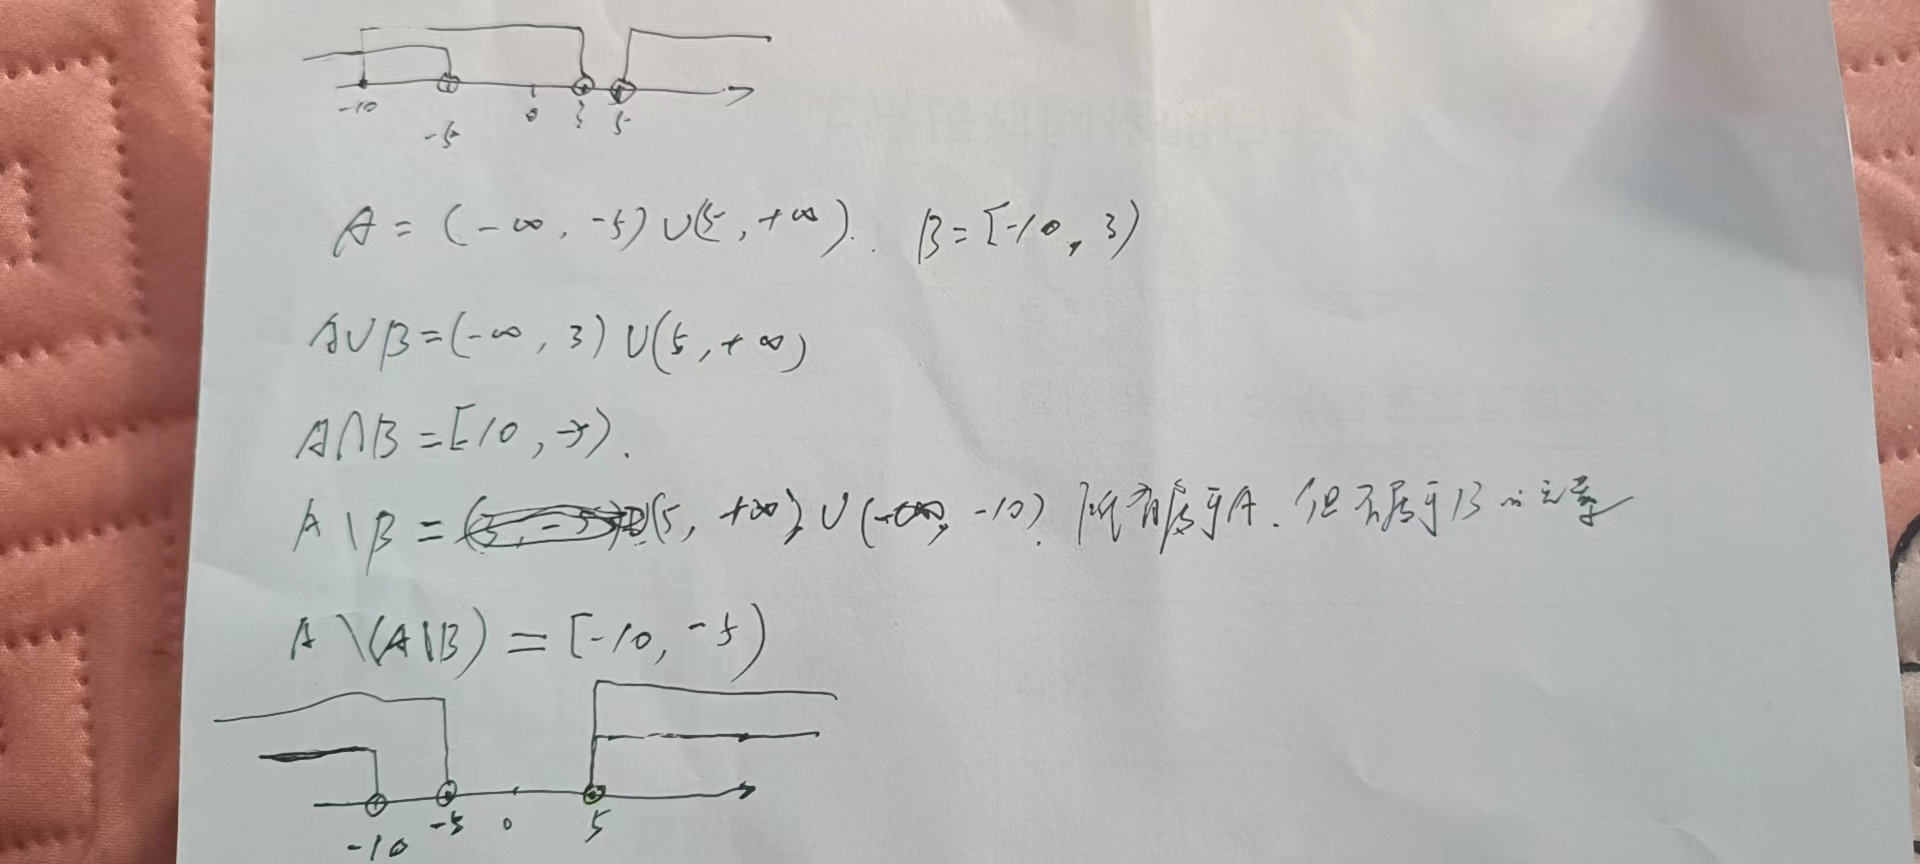 -10 -5 0 3 5
A = (-∞, -5) ∪ (5, +∞). B = [-10, 3)
A∪B = (-∞, 3) ∪ (5, +∞)
A∩B = [10, -5).
A \ B = (5, +∞) ∪ (-∞, -10). 所有属于A.但不属于B的元素
A \ (A\B) = [-10, -5)
-10 -5 0 5